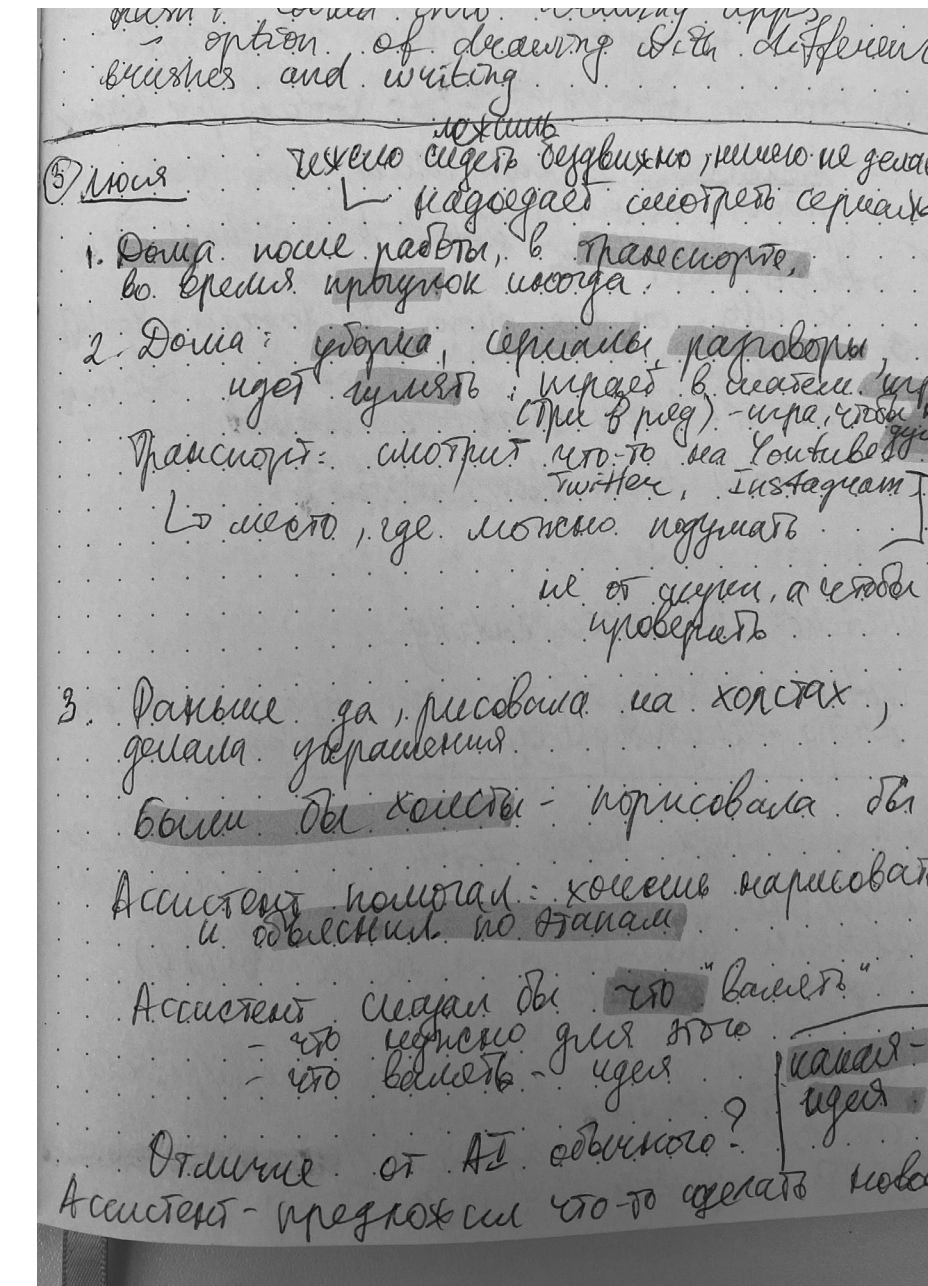 - option of drawing with different
brushes and writing
лежишь
тяжело сидеть бездвижно, ничего не дела
③ Люся
надоедает смотреть сериалы
1. Дома после работы, в транспорте,
во время прогулок иногда.
2. Дома: уборка, сериалы, разговоры,
идёт гулять, играет в
(три в ряд) - игра, чтобы
Транспорт: смотрит что-то на Youtube
Twitter, Instagram
место, где можно подумать
не от скуки, а чтобы
проверить
3. Раньше да, рисовала на холстах,
делала украшения.
Были бы холсты - порисовала бы
Ассистент помогал: хочешь нарисоват
и объяснил по этапам
Ассистент сказал бы что "валять"
- что нужно для этого
- что валять - идея
какая-
идея
Отличие от AI обычного?
Ассистент - предложил что-то сделать ново